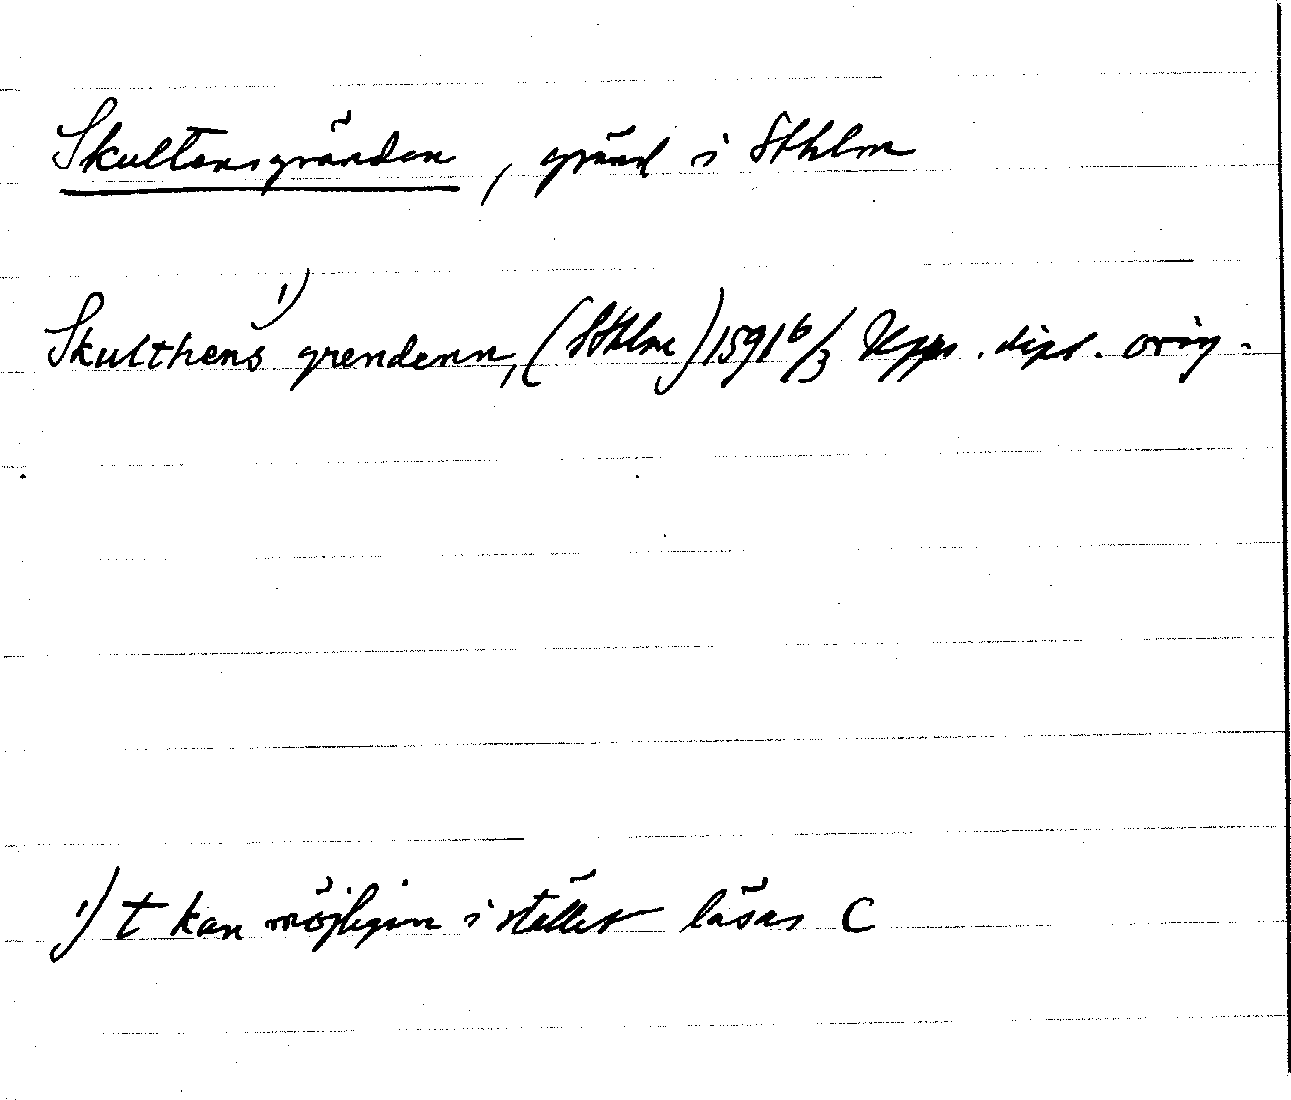 Skultensgränden, gränd i Sthlm
Skulthens 1) grendenn, (Sthlm) 1591 6/3 Upps. dipl. orig.
1) t kan möjligen i stället läsas c